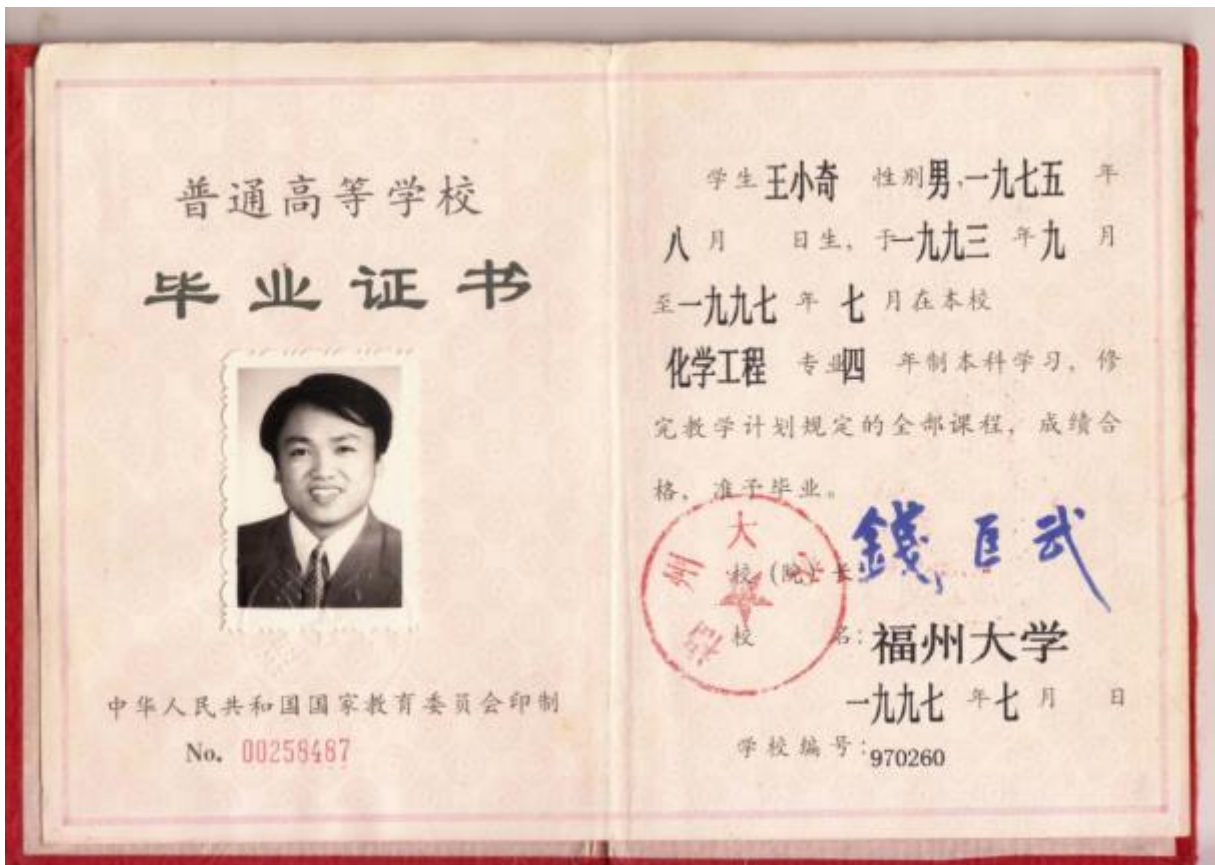 普通高等学校
毕业证书
中华人民共和国国家教育委员会印制
No. 00258487
学生 王小奇 性别 男,一九七五 年
八 月 日生, 于一九九三 年 九 月
至一九九七 年 七 月在本校
化学工程 专业四 年制本科学习, 修
完教学计划规定的全部课程, 成绩合
格, 准予毕业。
福州大学
校 (院) 长 錢匡武
校 名: 福州大学
一九九七 年七 月 日
学校编号: 970260